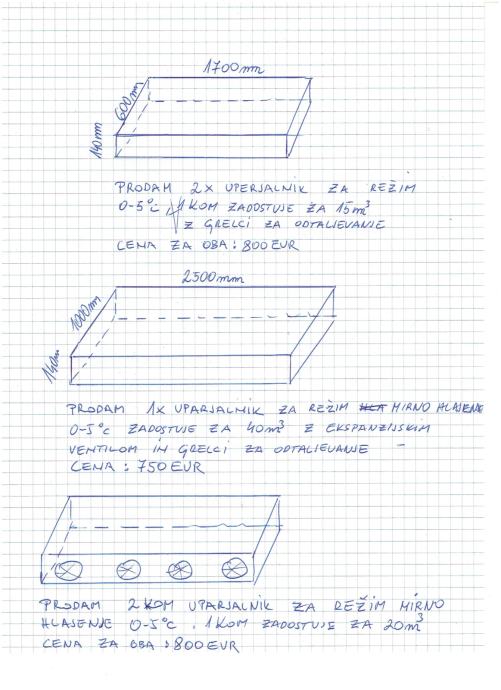 1700mm
600mm
140mm
PRODAM 2X UPERJALNIK ZA REŽIM
0-5°C, 1 KOM ZADOSTUJE ZA 15m³
Z GRELCI ZA ODTALIEVANIE
CENA ZA OBA: 800 EUR
2500mm
1000mm
140m
PRODAM 1X UPARJALNIK ZA REŽIM MIRNO HLAJENJE
0-5°C ZADOSTUJE ZA 40m³ Z EKSPANZIJSKIM
VENTILOM IN GRELCI ZA ODTALIEVANJE -
CENA: 750 EUR
PRODAM 2 KOM UPARJALNIK ZA REŽIM MIRNO
HLAJENJE 0-5°C. 1 KOM ZADOSTUJE ZA 20m³
CENA ZA OBA: 800 EUR